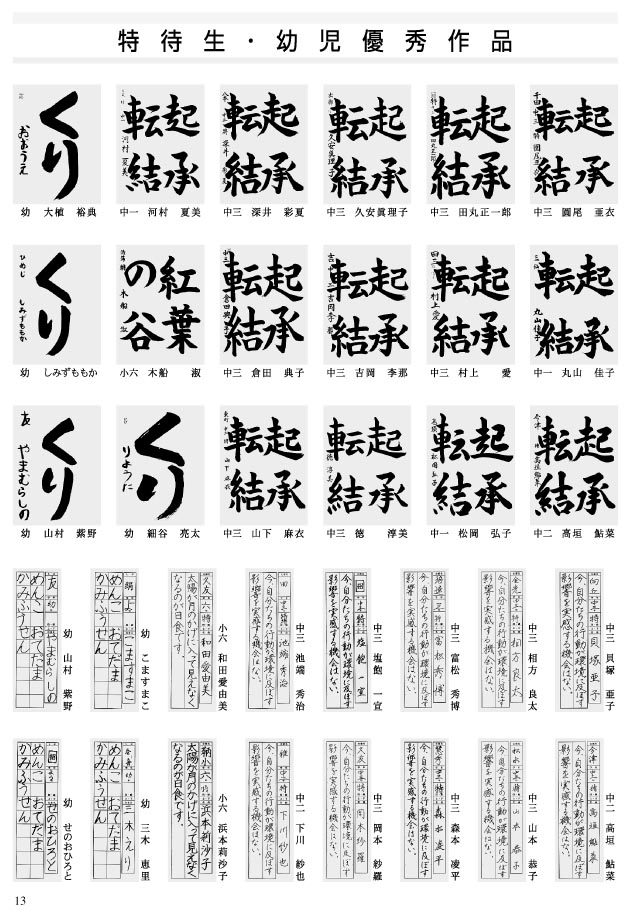 特待生・幼児優秀作品
起承
転結
中三 圓尾 亜衣
起承
転結
中三 田丸正一郎
起承
転結
中三 久安眞理子
起承
転結
中三 深井 彩夏
起承
転結
中一 河村 夏美
くり
おおうえ
幼 大植 裕典
起承
転結
丸山佳子
中一 丸山 佳子
起承
転結
村上愛
中三 村上 愛
起承
転結
中三 吉岡 李那
起承
転結
中三 倉田 典子
紅葉
の谷
小六 木船 淑
くり
ひめじ
しみずももか
幼 しみずももか
起承
転結
中二 高垣 鮎菜
起承
転結
中一 松岡 弘子
起承
転結
中三 徳 淳美
起承
転結
中三 山下 麻衣
くり
りょうた
幼 細谷 亮太
くり
友 やまむらしの
幼 山村 紫野
貝塚亜子
今、自分たちの行動が環境に及ぼす
影響を実感する機会はない。
中三 貝塚 亜子
相方良太
今、自分たちの行動が環境に及ぼす
影響を実感する機会はない。
中三 相方 良太
富松秀博
今、自分たちの行動が環境に及ぼす
影響を実感する機会はない。
中三 富松 秀博
塩飽一宣
今、自分たちの行動が環境に及ぼす
影響を実感する機会はない。
中三 塩飽 一宣
池端秀治
今、自分たちの行動が環境に及ぼす
影響を実感する機会はない。
中三 池端 秀治
和田愛由美
太陽が月のかげに入って見えなく
なるのが日食です。
小六 和田愛由美
こますまこ
めんこ おてだま
かみふうせん
幼 こますまこ
やまむらしの
めんこ おてだま
かみふうせん
幼 山村 紫野
高垣鮎菜
今、自分たちの行動が環境に及ぼす
影響を実感する機会はない。
中二 高垣 鮎菜
山本恭子
今、自分たちの行動が環境に及ぼす
影響を実感する機会はない。
中三 山本 恭子
森本凌平
今、自分たちの行動が環境に及ぼす
影響を実感する機会はない。
中三 森本 凌平
岡本紗羅
今、自分たちの行動が環境に及ぼす
影響を実感する機会はない。
中三 岡本 紗羅
下川紗也
今、自分たちの行動が環境に及ぼす
影響を実感する機会はない。
中二 下川 紗也
浜本莉沙子
太陽が月のかげに入って見えなく
なるのが日食です。
小六 浜本莉沙子
三木えり
めんこ おてだま
かみふうせん
幼 三木 恵里
せのおひろと
めんこ おてだま
かみふうせん
幼 せのおひろと
13